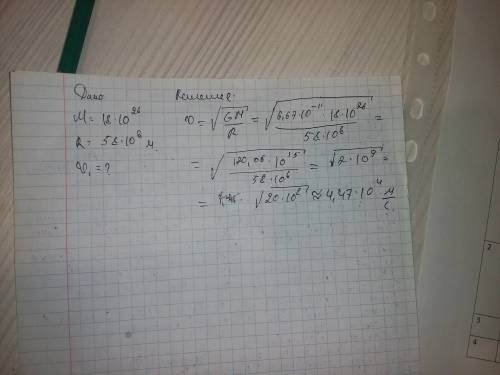 Дано
M = 18·10²⁶
R = 58·10⁶ м.
υ₁ = ?
Решение:
υ = √(GM/R) = √(6,67·10⁻¹¹ · 18·10²⁶ / 58·10⁶) =
= √(120,06·10¹⁵ / 58·10⁶) = √(2·10⁹) =
= √(20·10⁸) ≈ 4,47·10⁴ м/с.
2
3
4